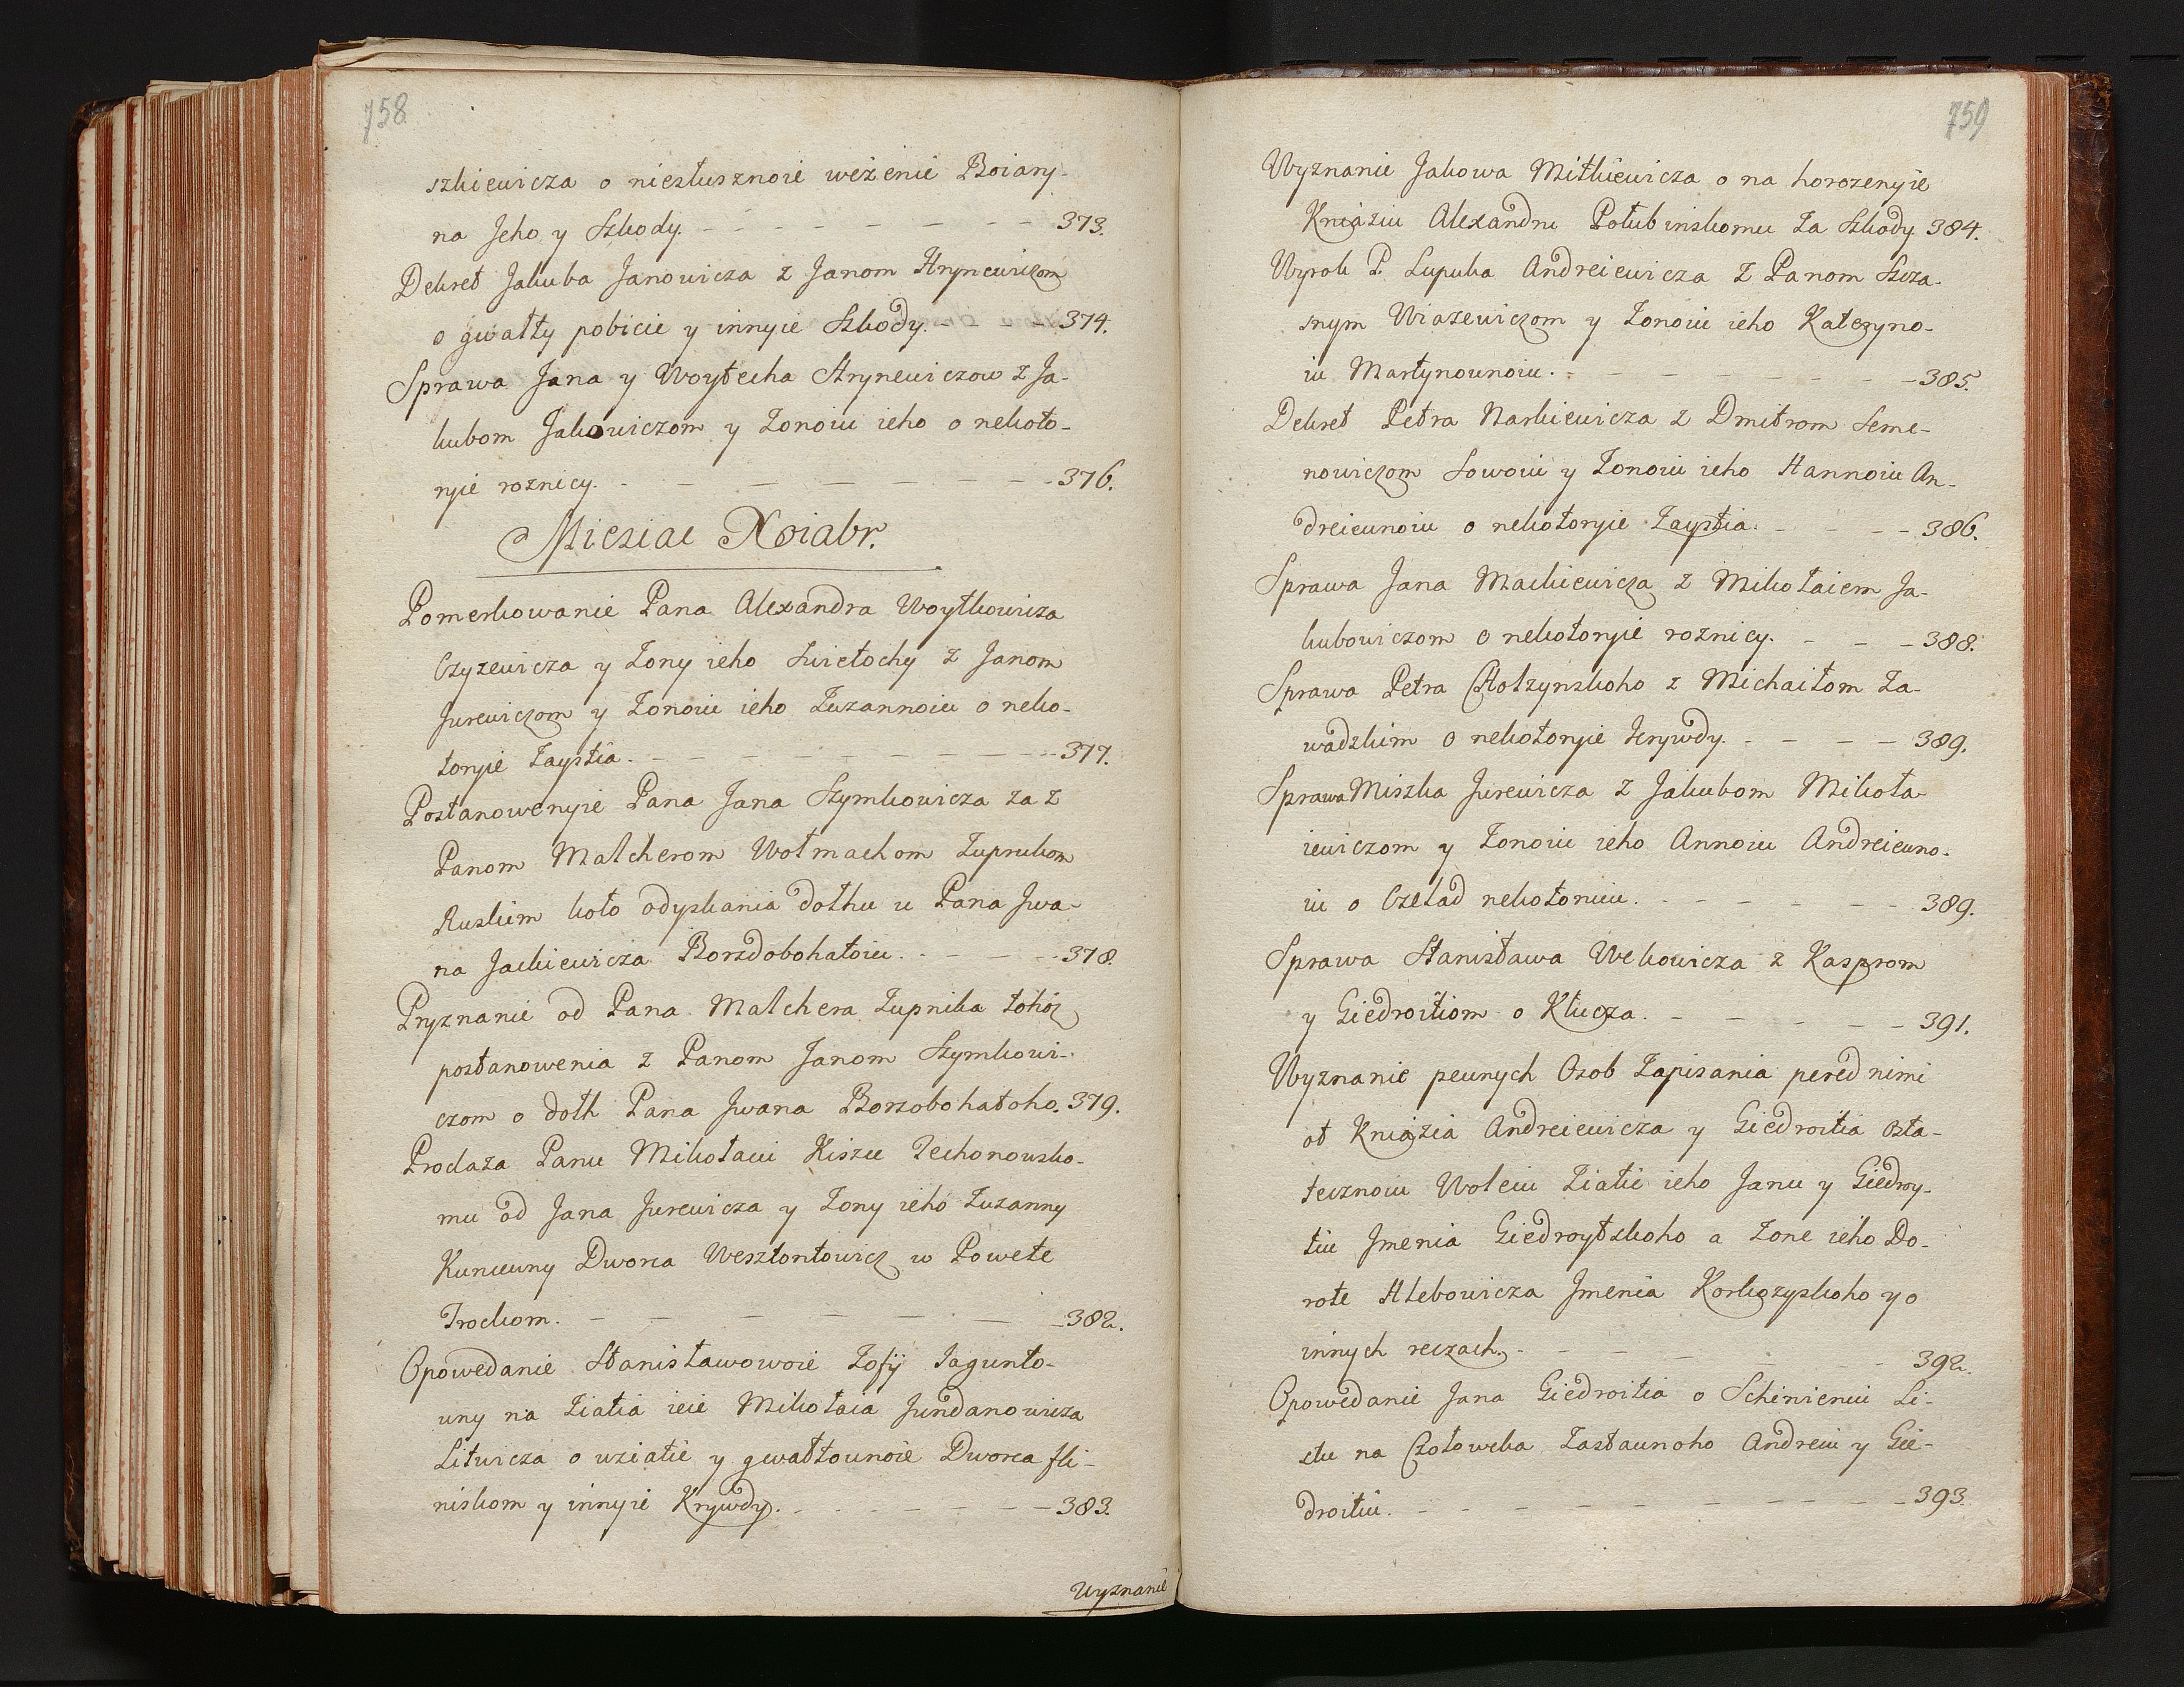 758
szkiewicza o niesłusznoie weżenie Boiary-
na Jeho y Szkody. 373.
Dekret Jakuba Janowicza z Janom Hryncewiczom
o gwałty pobicie y innyie Szkody. 374.
Sprawa Jana y Woytecha Hrynewiczow z Ja-
kubom Jakowiczom y Żonoiu ieho o nekoto-
ryie roznicy. 376.
Miesiac Noiabr.
Pomerkowanie Pana Alexandra Woytkowicza
Czyzewicza y Żony ieho Swietochy z Janom
Jurewiczom y Żonoiu ieho Zuzannoiu o neko-
toryie Zaystia. 377.
Postanowenyie Pana Jana Szymkowicza za z
Panom Malcherom Wolmachom Zuprukom
Ruskim koło odyskania dołhu u Pana Jwa-
na Jackiewicza Borzdobohatoiu. 378.
Pryznanie od Pana Malchera Zupnika tohoż
postanowenia z Panom Janom Szymkowi-
czom o dołh Pana Jwana Borzobohatoho. 379.
Prodaża Panu Mikołaiu Kiszu Techonowsko-
mu od Jana Jurewicza y Żony ieho Zuzanny
Kuncewny Dworca Wesztortowicz w Powete
Trockom. 382.
Opowedanie Stanisławowoie Zofij Jagunto-
wny na Ziatia ieie Mikołaia Jundanowicza
Litwicza o wziatie y gwałtownoie Dworca Jli-
niskom y innyie Krywdy. 383.
Wyznanie
759
Wyznanie Jakowa Mitkiewicza o na horozenyie
Kniaziu Alexandru Połubinskomu za Szkody 384.
Wyrok P. Łupuka Andreiewicza z Panom Szcza-
snym Wiazewiczom y Żonoiu ieho Katerzyno-
iu Martynownoiu. 385.
Dekret Petra Narkiewicza z Dmitrom Seme-
nowiczom Sowoiu y Żonoiu ieho Hannoiu An-
dreiewnoiu o nekotoryie Zaystia. 386.
Sprawa Jana Mackiewicza z Mikołaiem Ja-
kubowiczom o nekotoryie roznicy. 388.
Sprawa Petra Chołzynskoho z Michaiłom Za-
wadzkim o nekotoryie Krywdy. 389.
Sprawa Miszka Jurewicza z Jakubom Mikoła-
iewiczom y Żonoiu ieho Annoiu Andreiewno-
iu o Czelad nekotoruiu. 389.
Sprawa Stanisława Wekowicza z Kasprom
y Giedroitiom o Klucza. 391.
Wyznanie pewnych Osob Zapisania pered nimi
ot Kniazia Andreiewicza y Giedroitia osta-
tecznoiu Woleiu Ziatie ieho Janu y Giedroy-
tiu Jmenia Giedroytskoho a Zone ieho Do-
rote Hlebowicza Jmenia Korkozyskoho y o
innych reczach. 392.
Opowedanie Jana Giedroitia o Schinieniu Li-
stu na Czołoweka Zastawnoho Andreiu y Gie-
droitiu. 393.